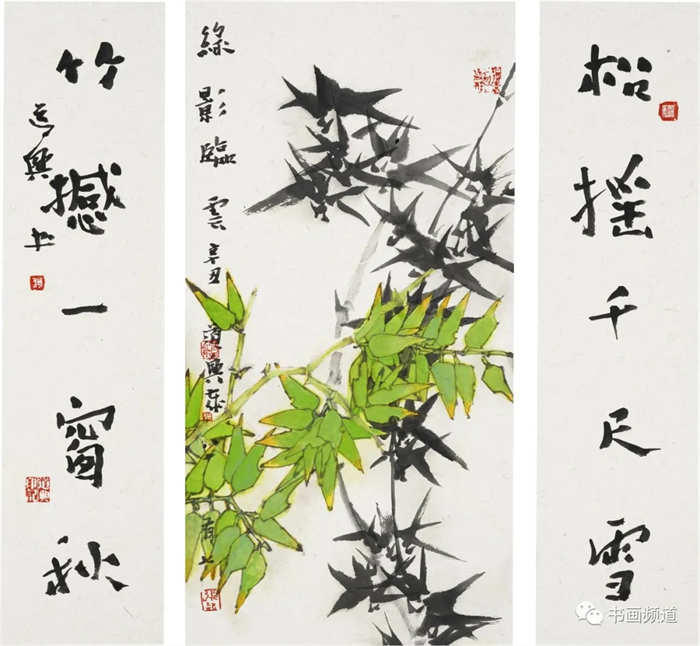 松摇千尺雪
綠影臨雲
辛丑
道興
竹撼一窗秋
道興
书画频道